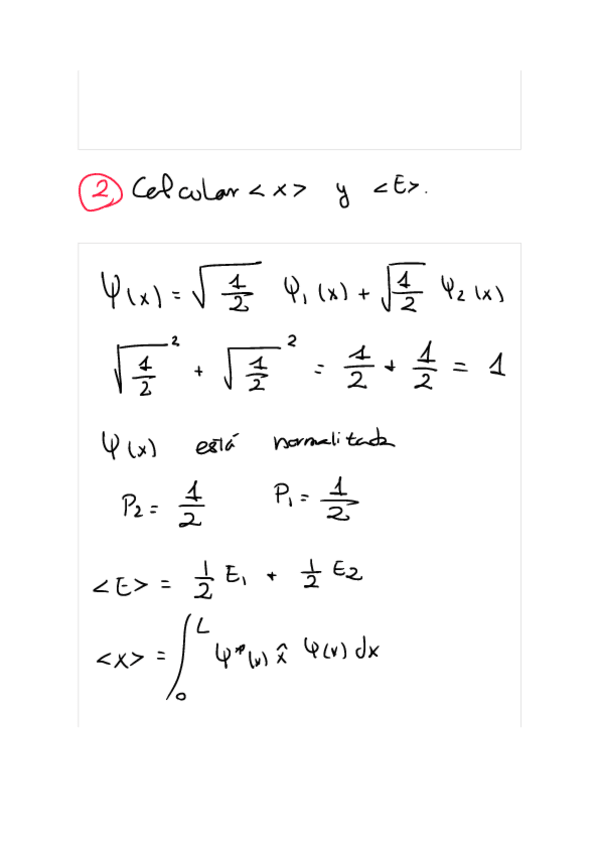 ② Calcular <x> y <E>.
Ψ(x) = √(1/2) φ₁(x) + √(1/2) φ₂(x)
√(1/2)² + √(1/2)² = 1/2 + 1/2 = 1
Ψ(x) está normalitzada
P₂ = 1/2 P₁ = 1/2
<E> = 1/2 E₁ + 1/2 E₂
<x> = ∫₀ᴸ φ*(x) x̂ φ(x) dx